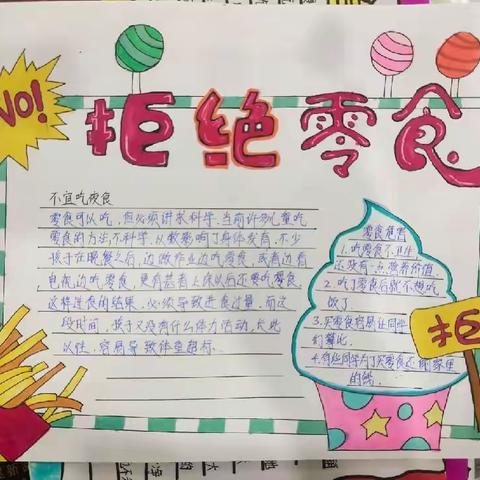 NO!
拒绝零食
不宜吃夜食
零食可以吃,但必须讲求科学,当前许多儿童吃
零食的方法,不科学,从数影响了身体发育,不少
孩子在晚餐之后,边做作业边吃零食,或者边看
电视,边吃零食,更有甚者上床以后还要吃零食,
这样进食的结果,必须导致进食过量,而这
段时间,孩子又没有什么体力活动,久此
以往,容易导致体重超标.
零食危害
1.吃零食不卫生
还没有一点营养价值.
2.吃了零食后就不想吃
饭了
3.买零食容易让同学
们攀比.
4.有些同学为了买零食还偷家里
的钱.
拒